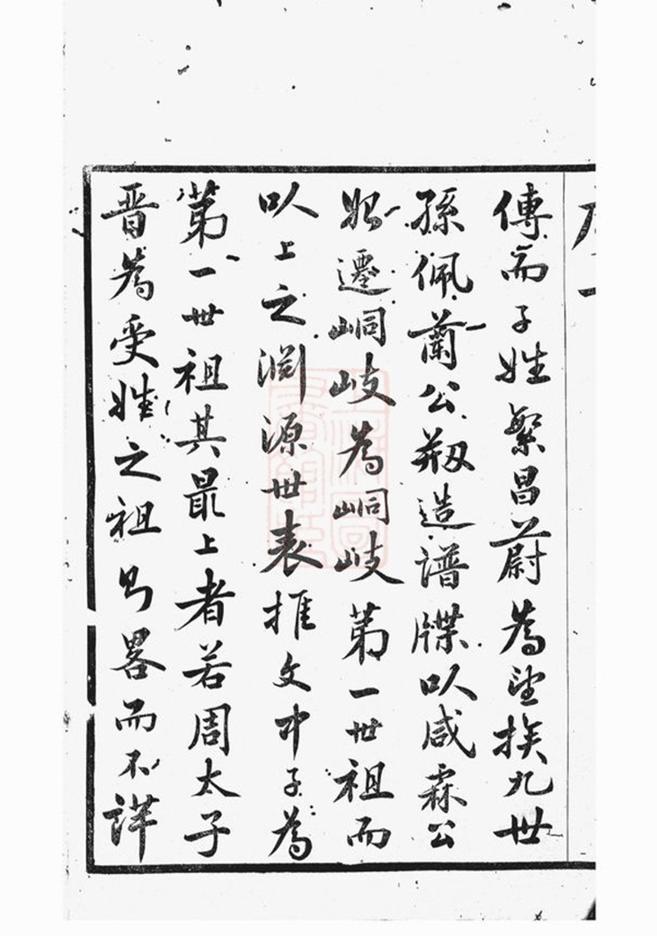 傳而子姓繁昌蔚為望族九世
孫佩蘭公剏造譜牒以咸霖公
始遷峒岐為峒岐第一世祖而
以上之淵源世表推文中子為
第一世祖其最上者若周太子
晋為受姓之祖乃畧而不詳